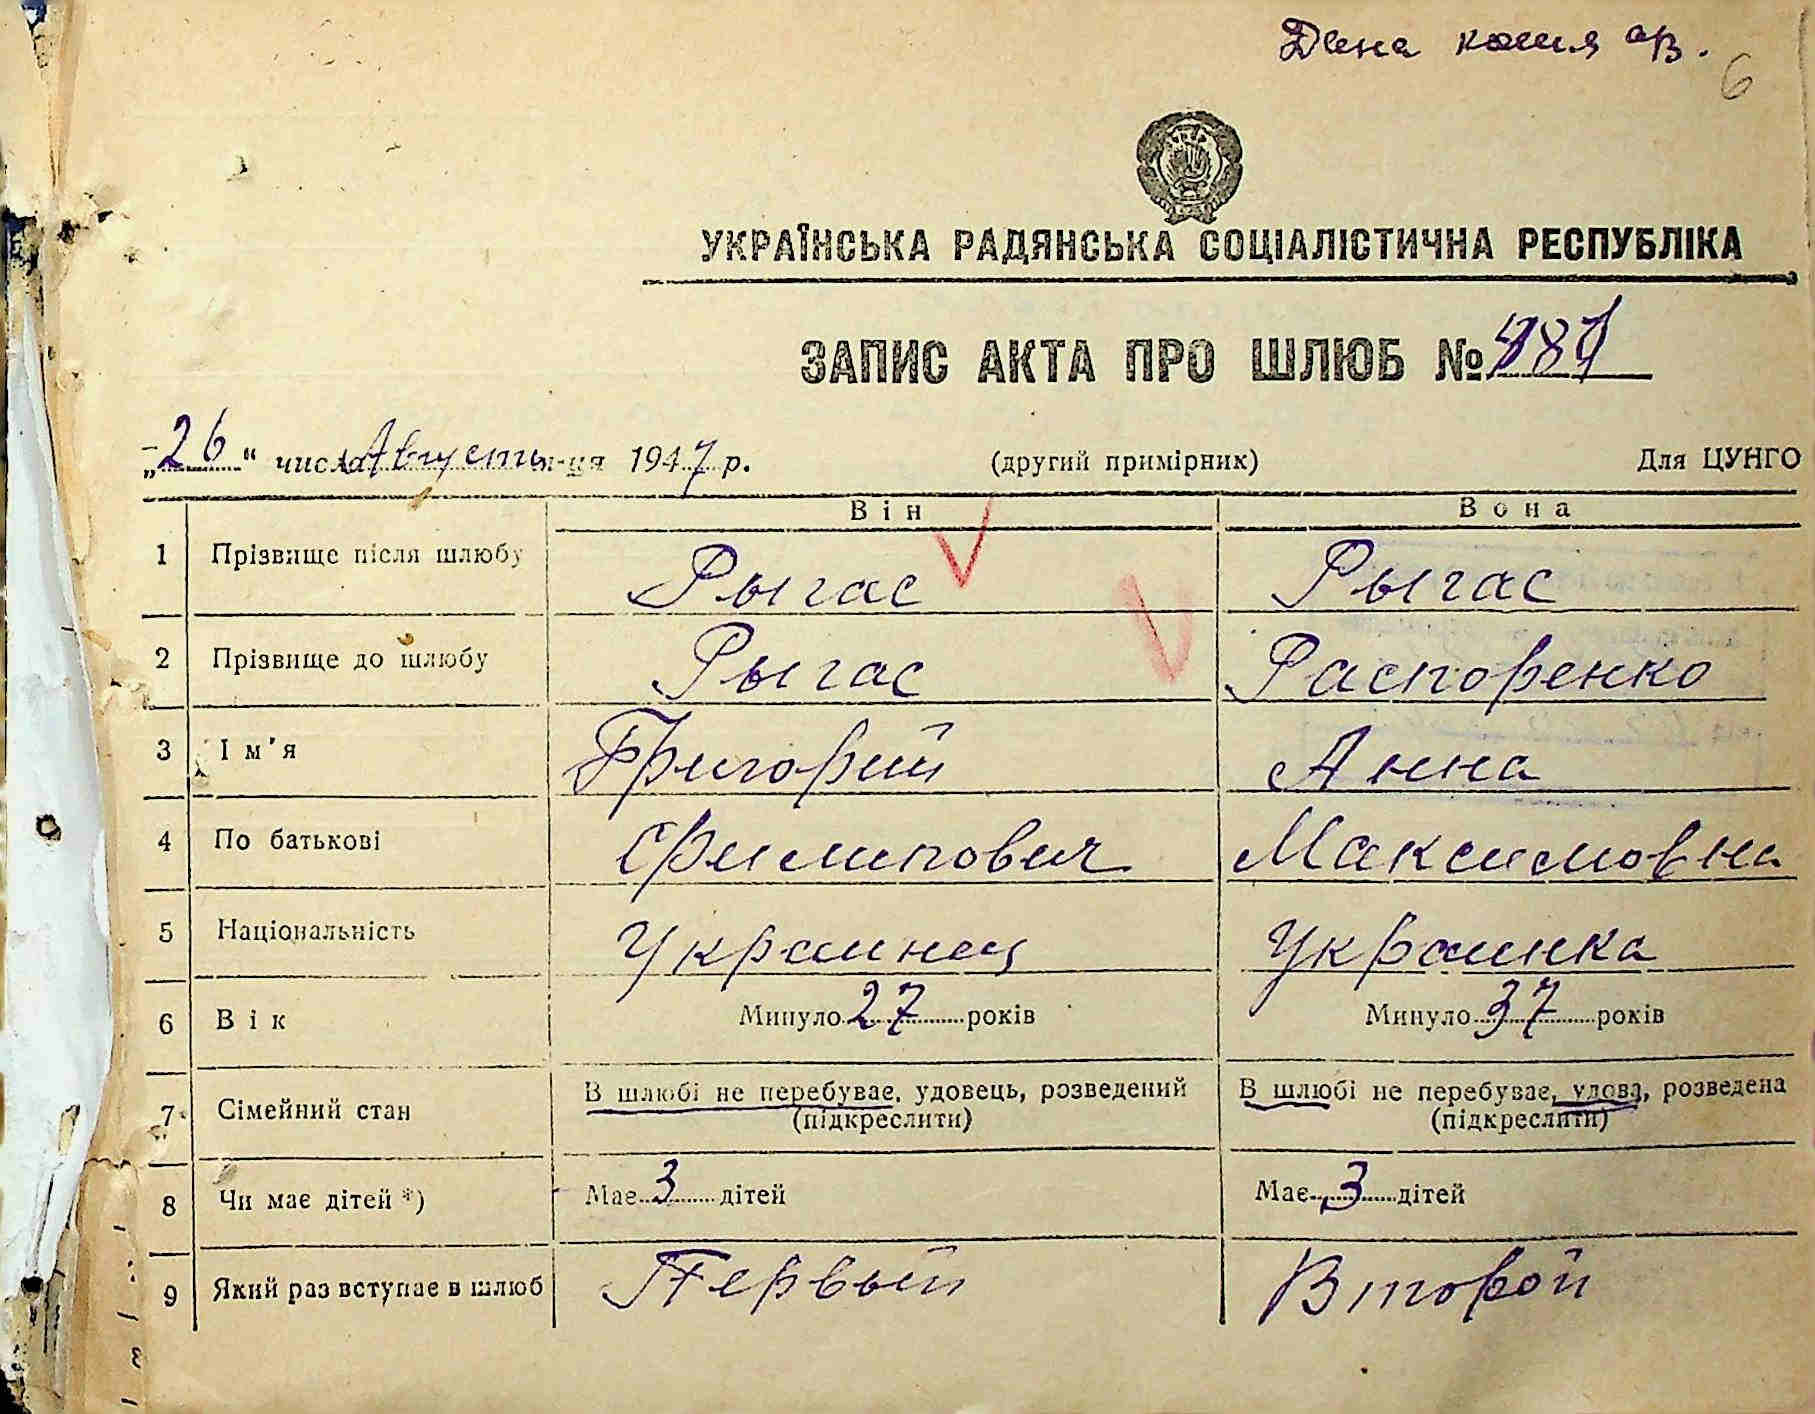 Дана копия
6
УКРАЇНСЬКА РАДЯНСЬКА СОЦІАЛІСТИЧНА РЕСПУБЛІКА
ЗАПИС АКТА ПРО ШЛЮБ №
„26“ числа Августа м-ця 1947 р. (другий примірник) Для ЦУНГО
Він Вона
1 Прізвище після шлюбу Рыгас Рыгас
2 Прізвище до шлюбу Рыгас Распоренко
3 Ім'я Григорий Анна
4 По батькові Филипович Максимовна
5 Національність Украинец Украинка
6 Вік Минуло 27 років Минуло 37 років
7 Сімейний стан В шлюбі не перебуває, удовець, розведений В шлюбі не перебуває, удова, розведена
(підкреслити) (підкреслити)
8 Чи має дітей *) Має 3 дітей Має 3 дітей
9 Який раз вступає в шлюб Первый Второй